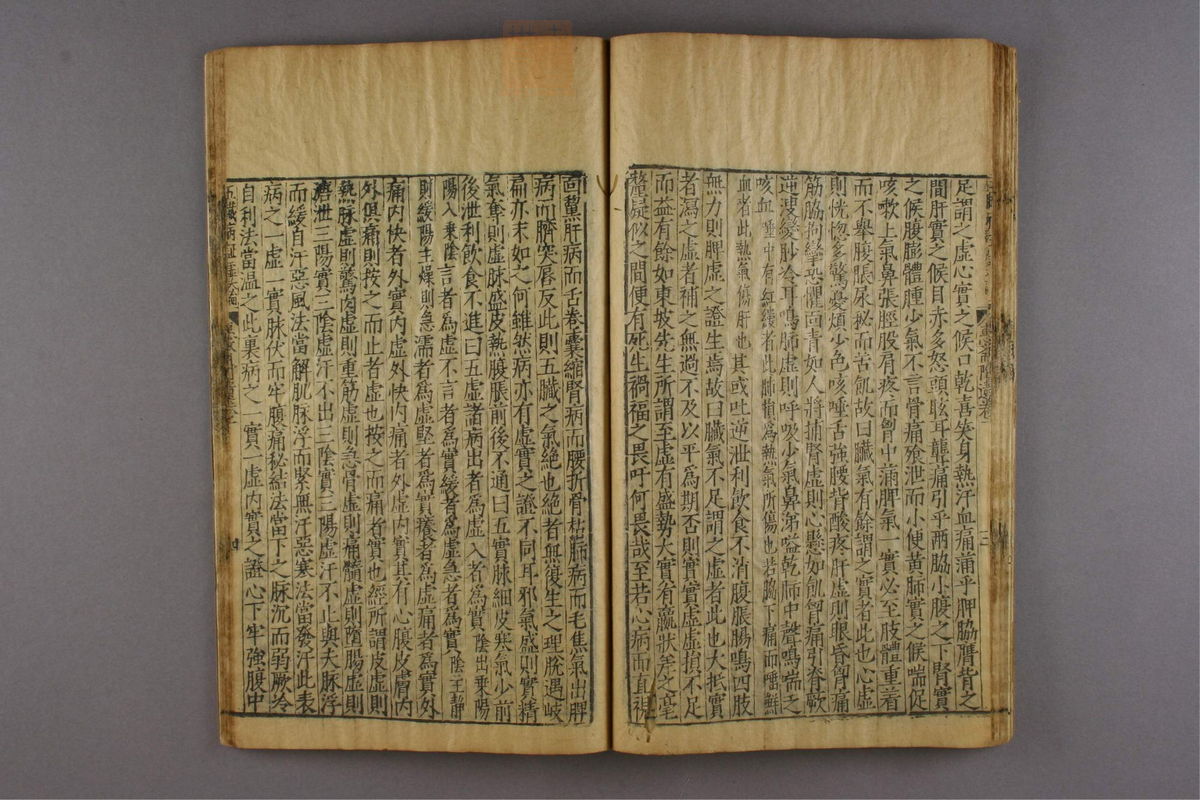 足謂之虛心實之候口乾喜笑身熱汗血痛滿乎胛脇膺背之
間肝實之候目赤多怒頭眩耳聾痛引乎兩脇小腹之下腎實
之候腹膨體腫少氣不言骨痛飱泄而小便黃肺實之候喘促
咳嗽上氣鼻張脛股肩疼而胷中滿脾氣一實必至肢體重着
而不舉腹脹尿祕而苦飢故曰臟氣有餘謂之實者此也心虛
則恍惚多驚憂煩少色咳唾舌強腰背酸疼肝虛則眼昏胷痛
筋脇拘攣恐懼面青如人將捕腎虛則心懸如飢胷痛引脊厥
逆溲變眇冷耳鳴肺虛則呼吸少氣鼻涕嗌乾肺中聲鳴喘之
咳血唾中有紅縷者此肺損為熱氣所傷也若脇下痛而嘔鮮
血者此熱氣傷肝也其或吐逆泄利飲食不消腹脹腸鳴四肢
無力則脾虛之證生焉故曰臟氣不足謂之虛者此也大抵實
者瀉之虛者補之無過不及以平爲期否則實實虛虛損不足
而益有餘如東坡先生所謂至虛有盛勢大實有羸狀差之毫
釐疑似之間便有死生禍福之畏吁何畏哉至若心病而直視
面黧肝病而舌卷囊縮腎病而腰折骨枯肺病而毛焦氣出脾
病而臍突唇反此則五臟之氣絶也絶者無復生之理脫遇岐
扁亦末如之何雖然病亦有虛實之證不同耳邪氣盛則實精
氣奪則虛脉盛皮熱腹脹前後不通曰五實脉細皮寒氣少前
後泄利飲食不進曰五虛諸病出者爲虛入者爲實陰出乗陽
陽入乗陰言者爲虛不言者爲實緩者爲虛急者爲實陰王靜
則緩陽主燥則急濡者爲虛堅者爲實癢者爲虛痛者爲實外
痛内快者外實内虛外快内痛者外虛内實其有心腹皮膚内
外俱痛則按之而止者虛也按之而痛者實也經所謂皮虛則
熱脉虛則驚肉虛則重筋虛則急骨虛則痛髓虛則墮腸虛則
溏泄三陽實三陰虛汗不出三陰實三陽虛汗不止與夫脉浮
而緩自汗惡風法當解肌脉浮而緊無汗惡寒法當發汗此表
病之一虛一實脉伏而牢腹痛秘結法當下之脉沉而弱厥冷
自利法當温之此裏病之一實一虛内實之證心下牢強腹中